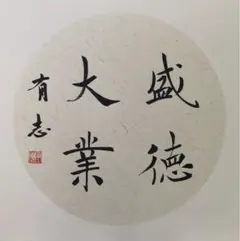 盛德
大業
有志